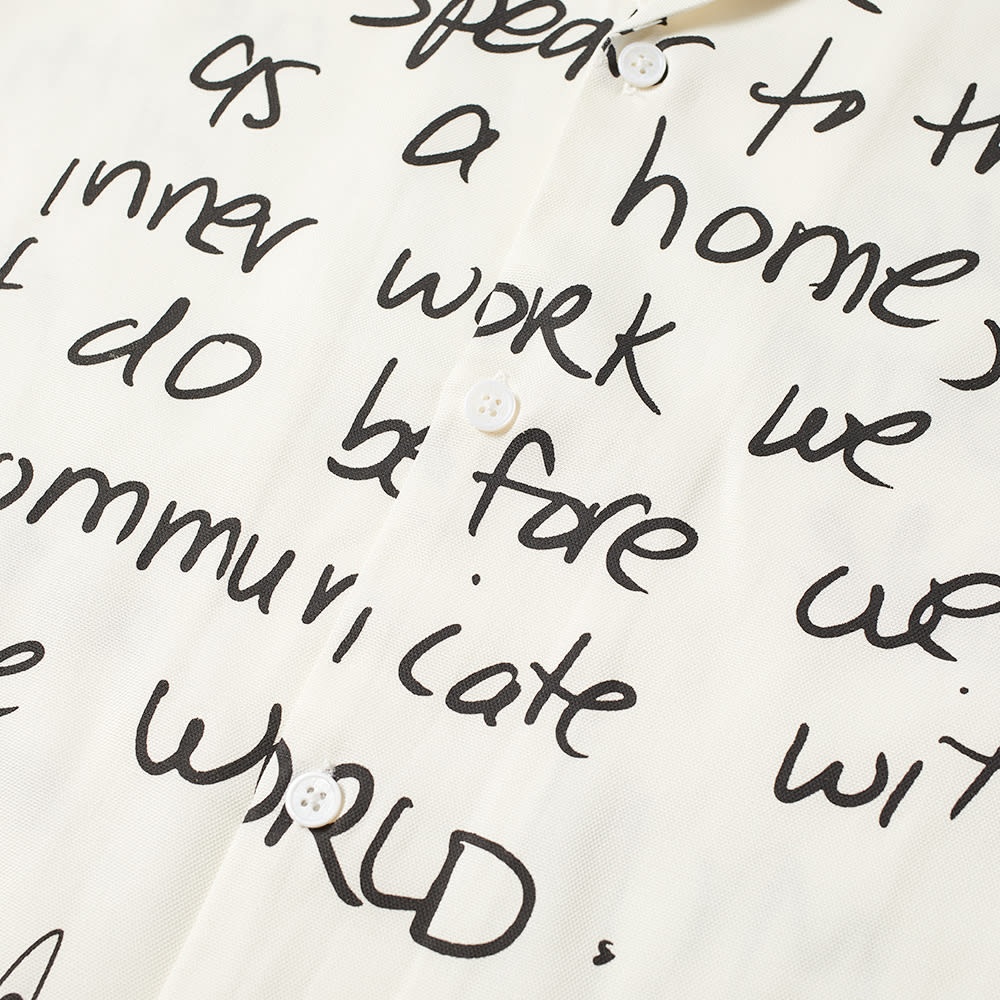 speak to th
as a home,
inner work we
do before we
ommunicate wit
e WORLD.